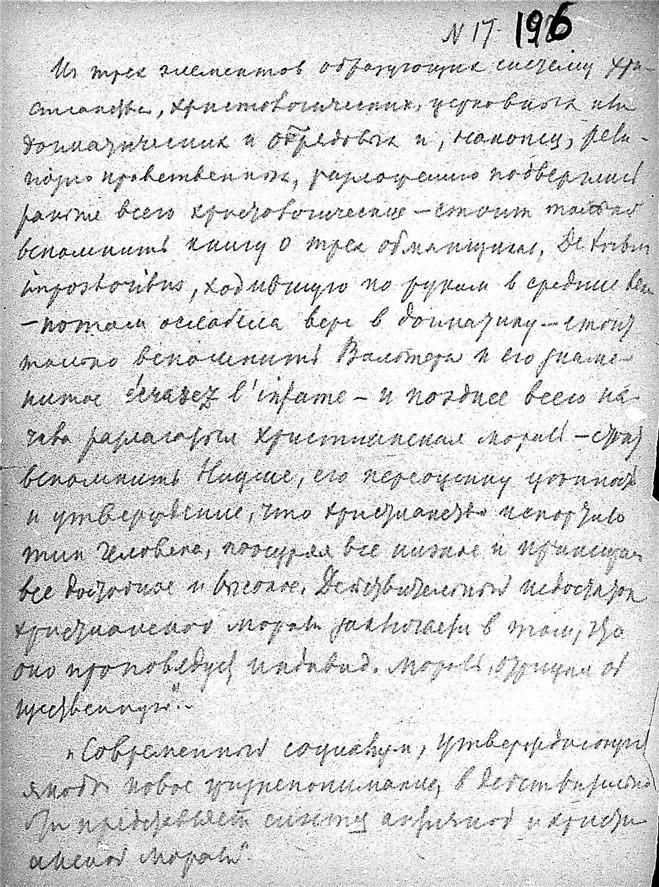 N 17. 196
Из трех элементов образующих систему хри-
стианства, христологических, церковных или
догматических и обрядовых и, наконец, рели-
гиозно нравственных, разложению подверглись
раньше всего христологические – стоит только
вспомнить книгу о трех обманщиках, De tribus
impostoribus, ходившую по рукам в средние века
– потом ослабела вера в догматику – стоит
только вспомнить Вольтера и его знаме-
нитое écrasez l'infame – и позднее всего на-
чала разлагаться христианская мораль – стоит
вспомнить Ницше, его переоценку ценностей
и утверждение, что христианство испортило
тип человека, поощряя все низкое и принижая
все достойное и высокое. Действительный недостаток
христианской морали заключается в том, что
она проповедует индивид. мораль, отрицая об
щественную".
"Современный социализм, утверждающий
якобы новое жизнепонимание, в действительно
сти представляет синтез античной и христи
анской морали".